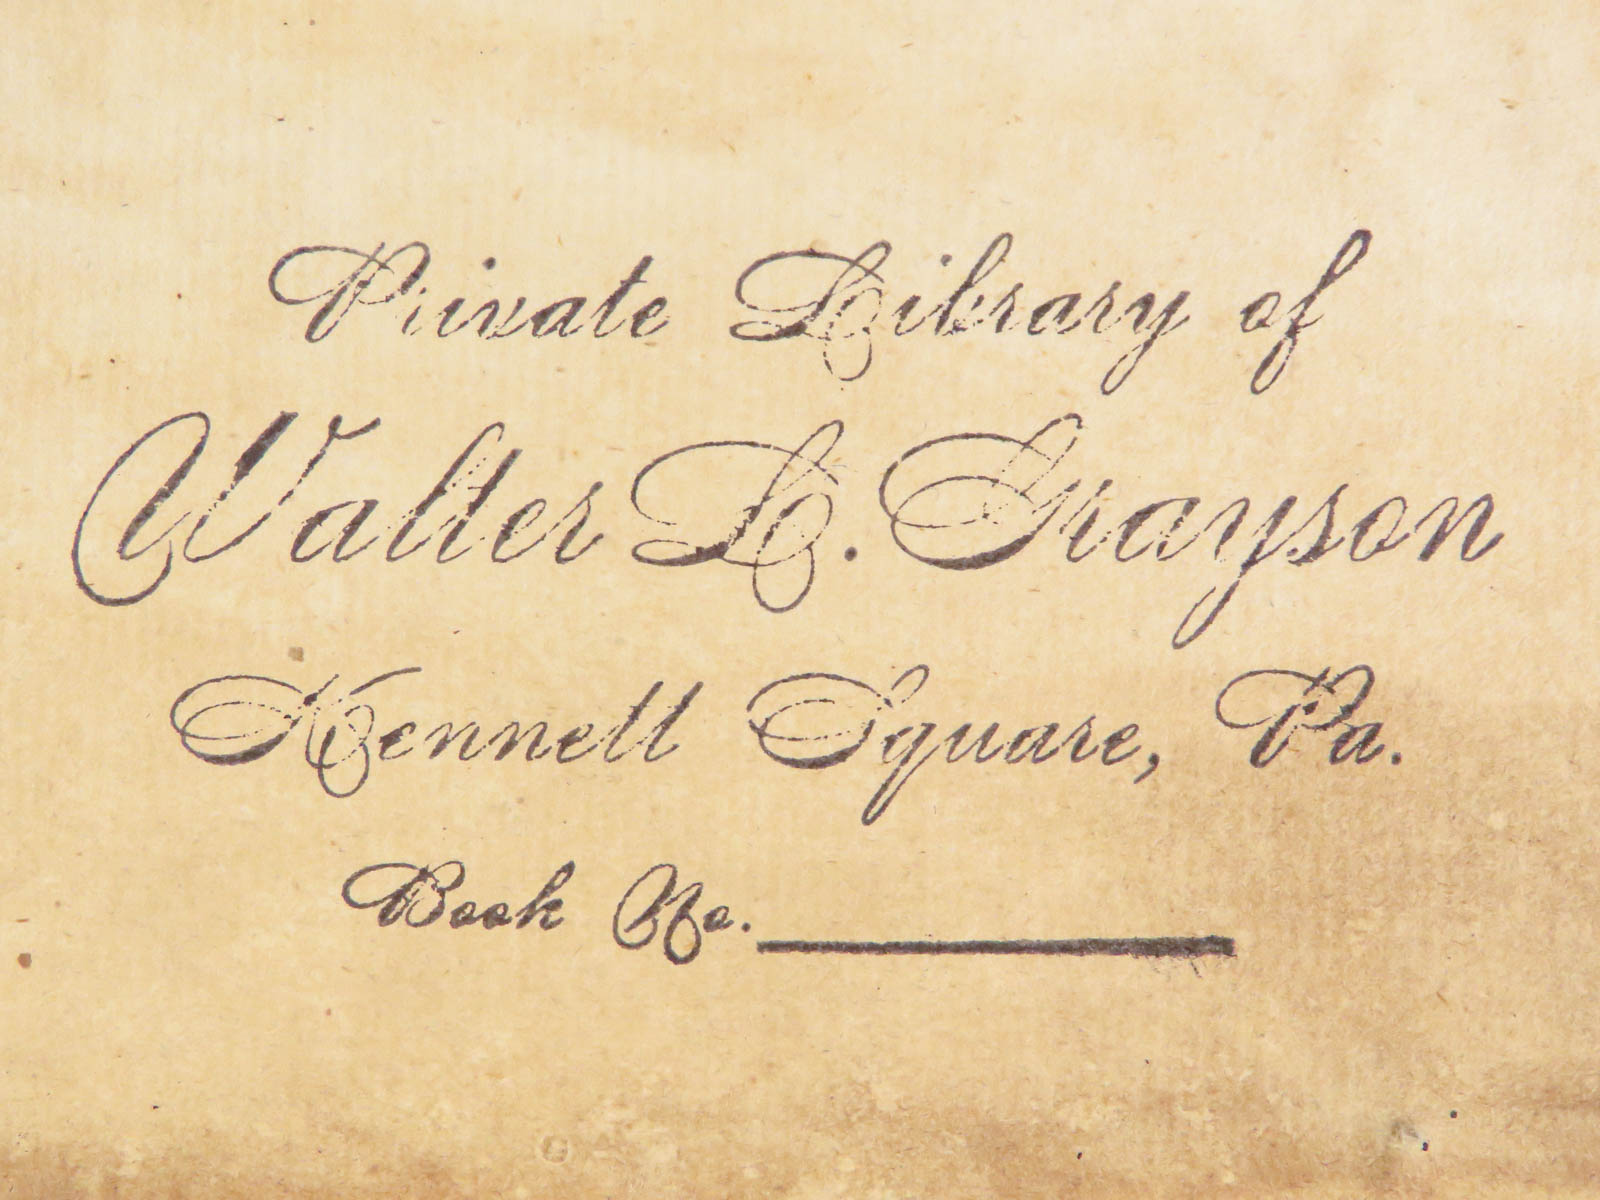 Private Library of
Walter L. Grayson
Kennett Square, Pa.
Book No.